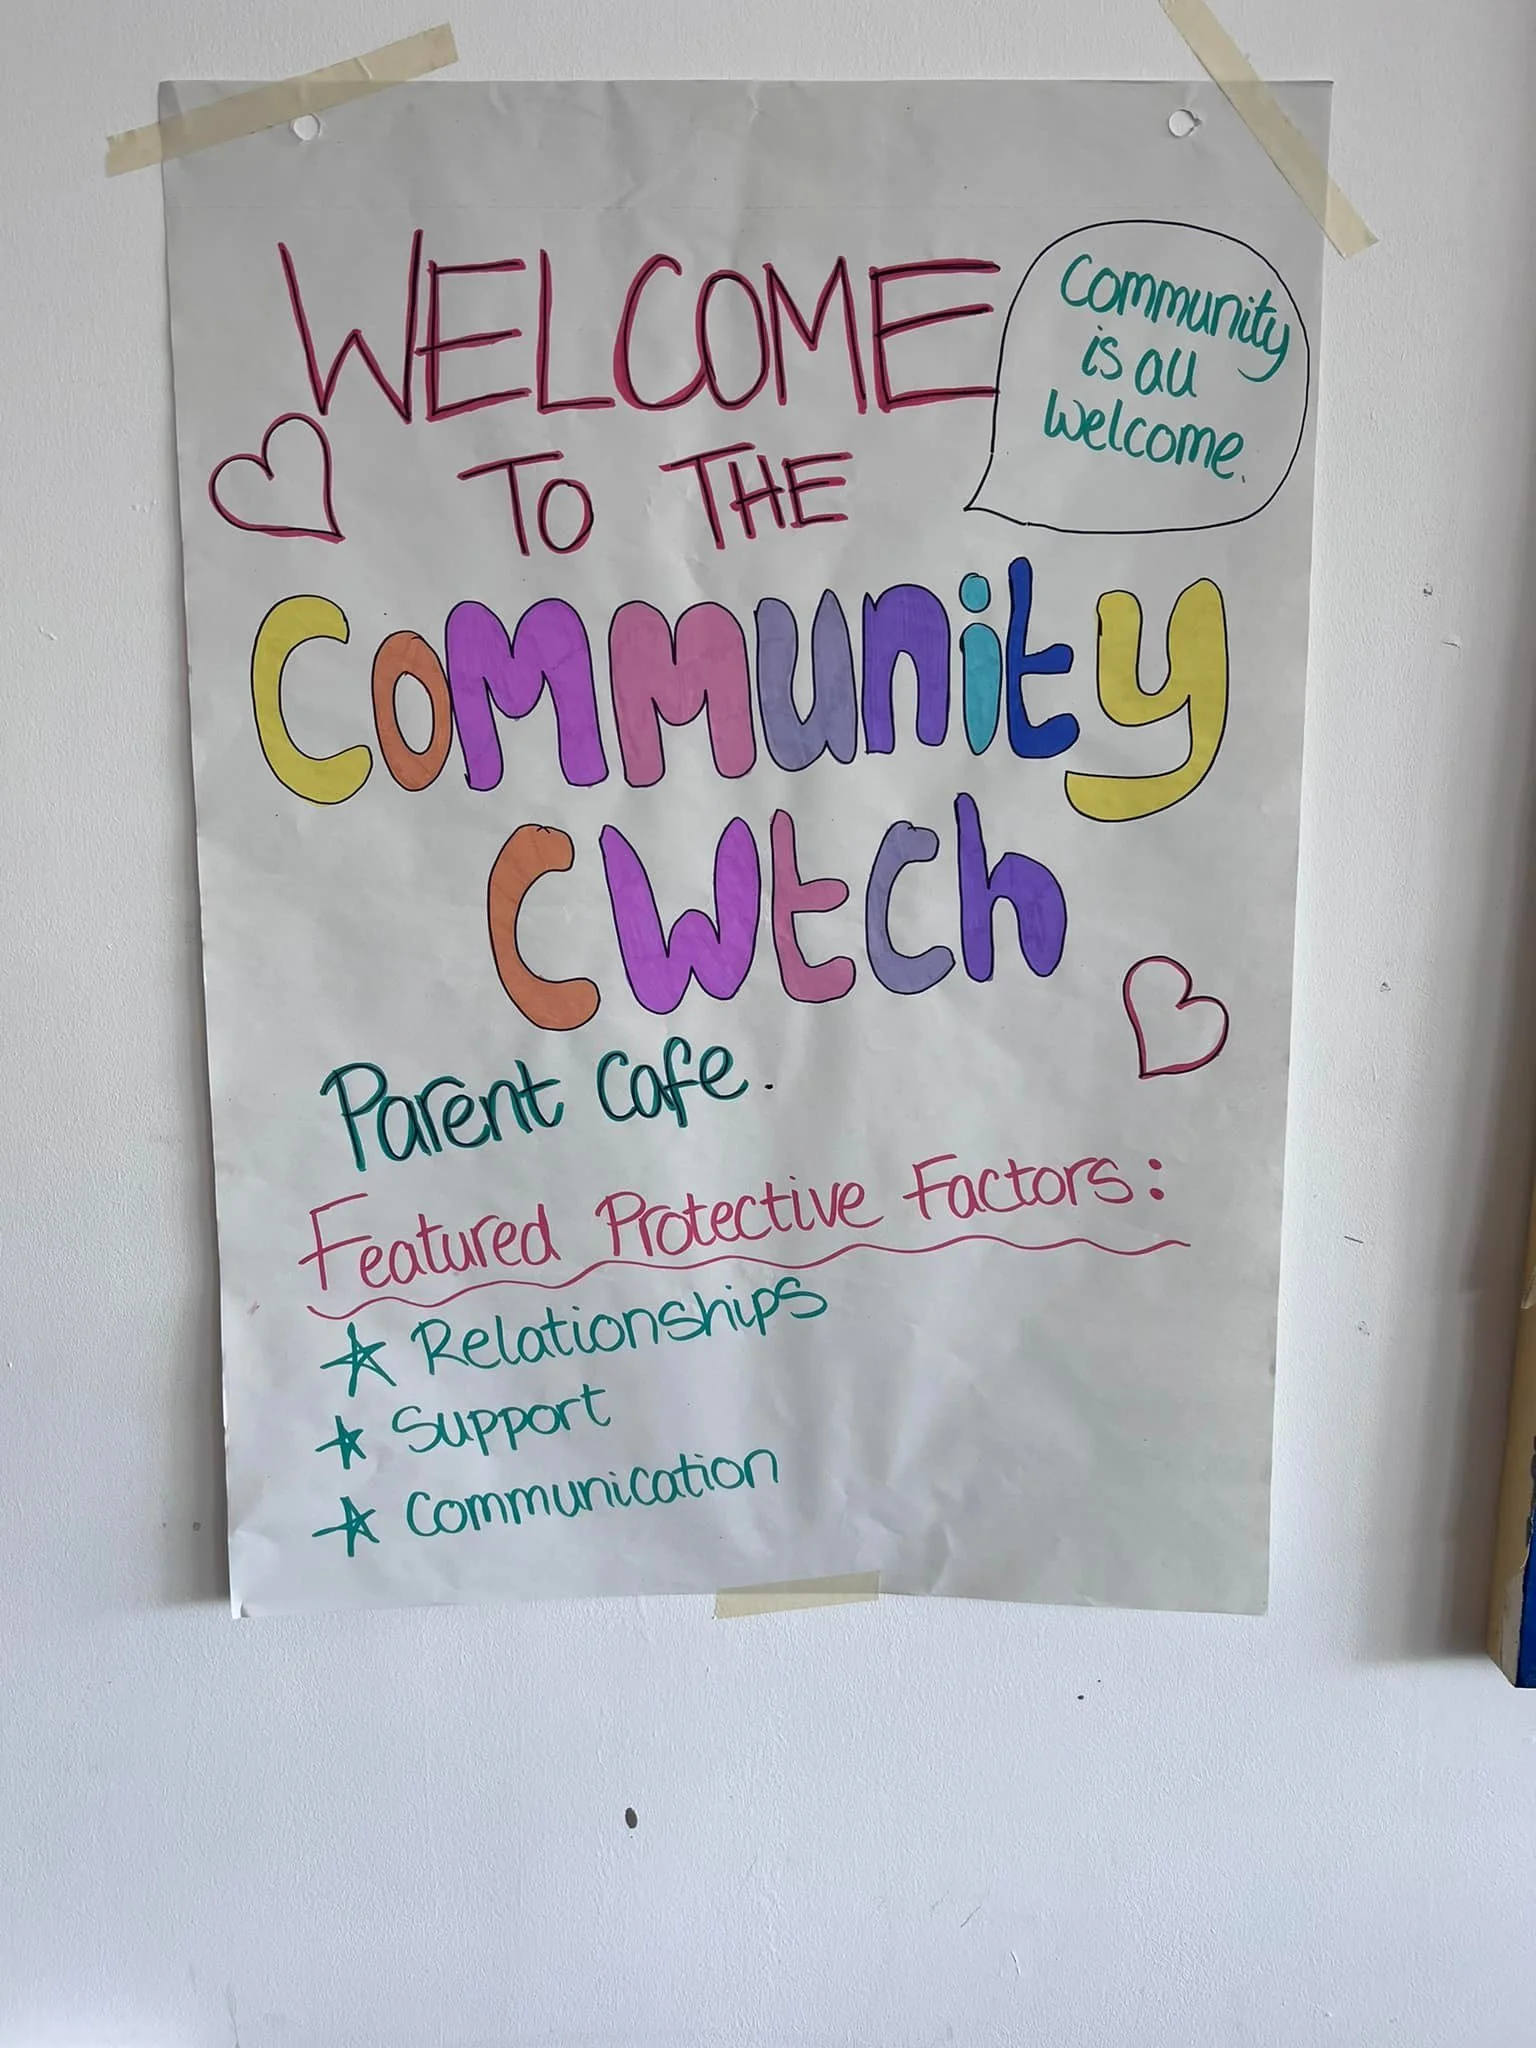 WELCOME
TO THE
Community
is all
welcome.
CoMMunity
CWtCh
Parent Cafe.
Featured Protective Factors:
Relationships
Support
Communication